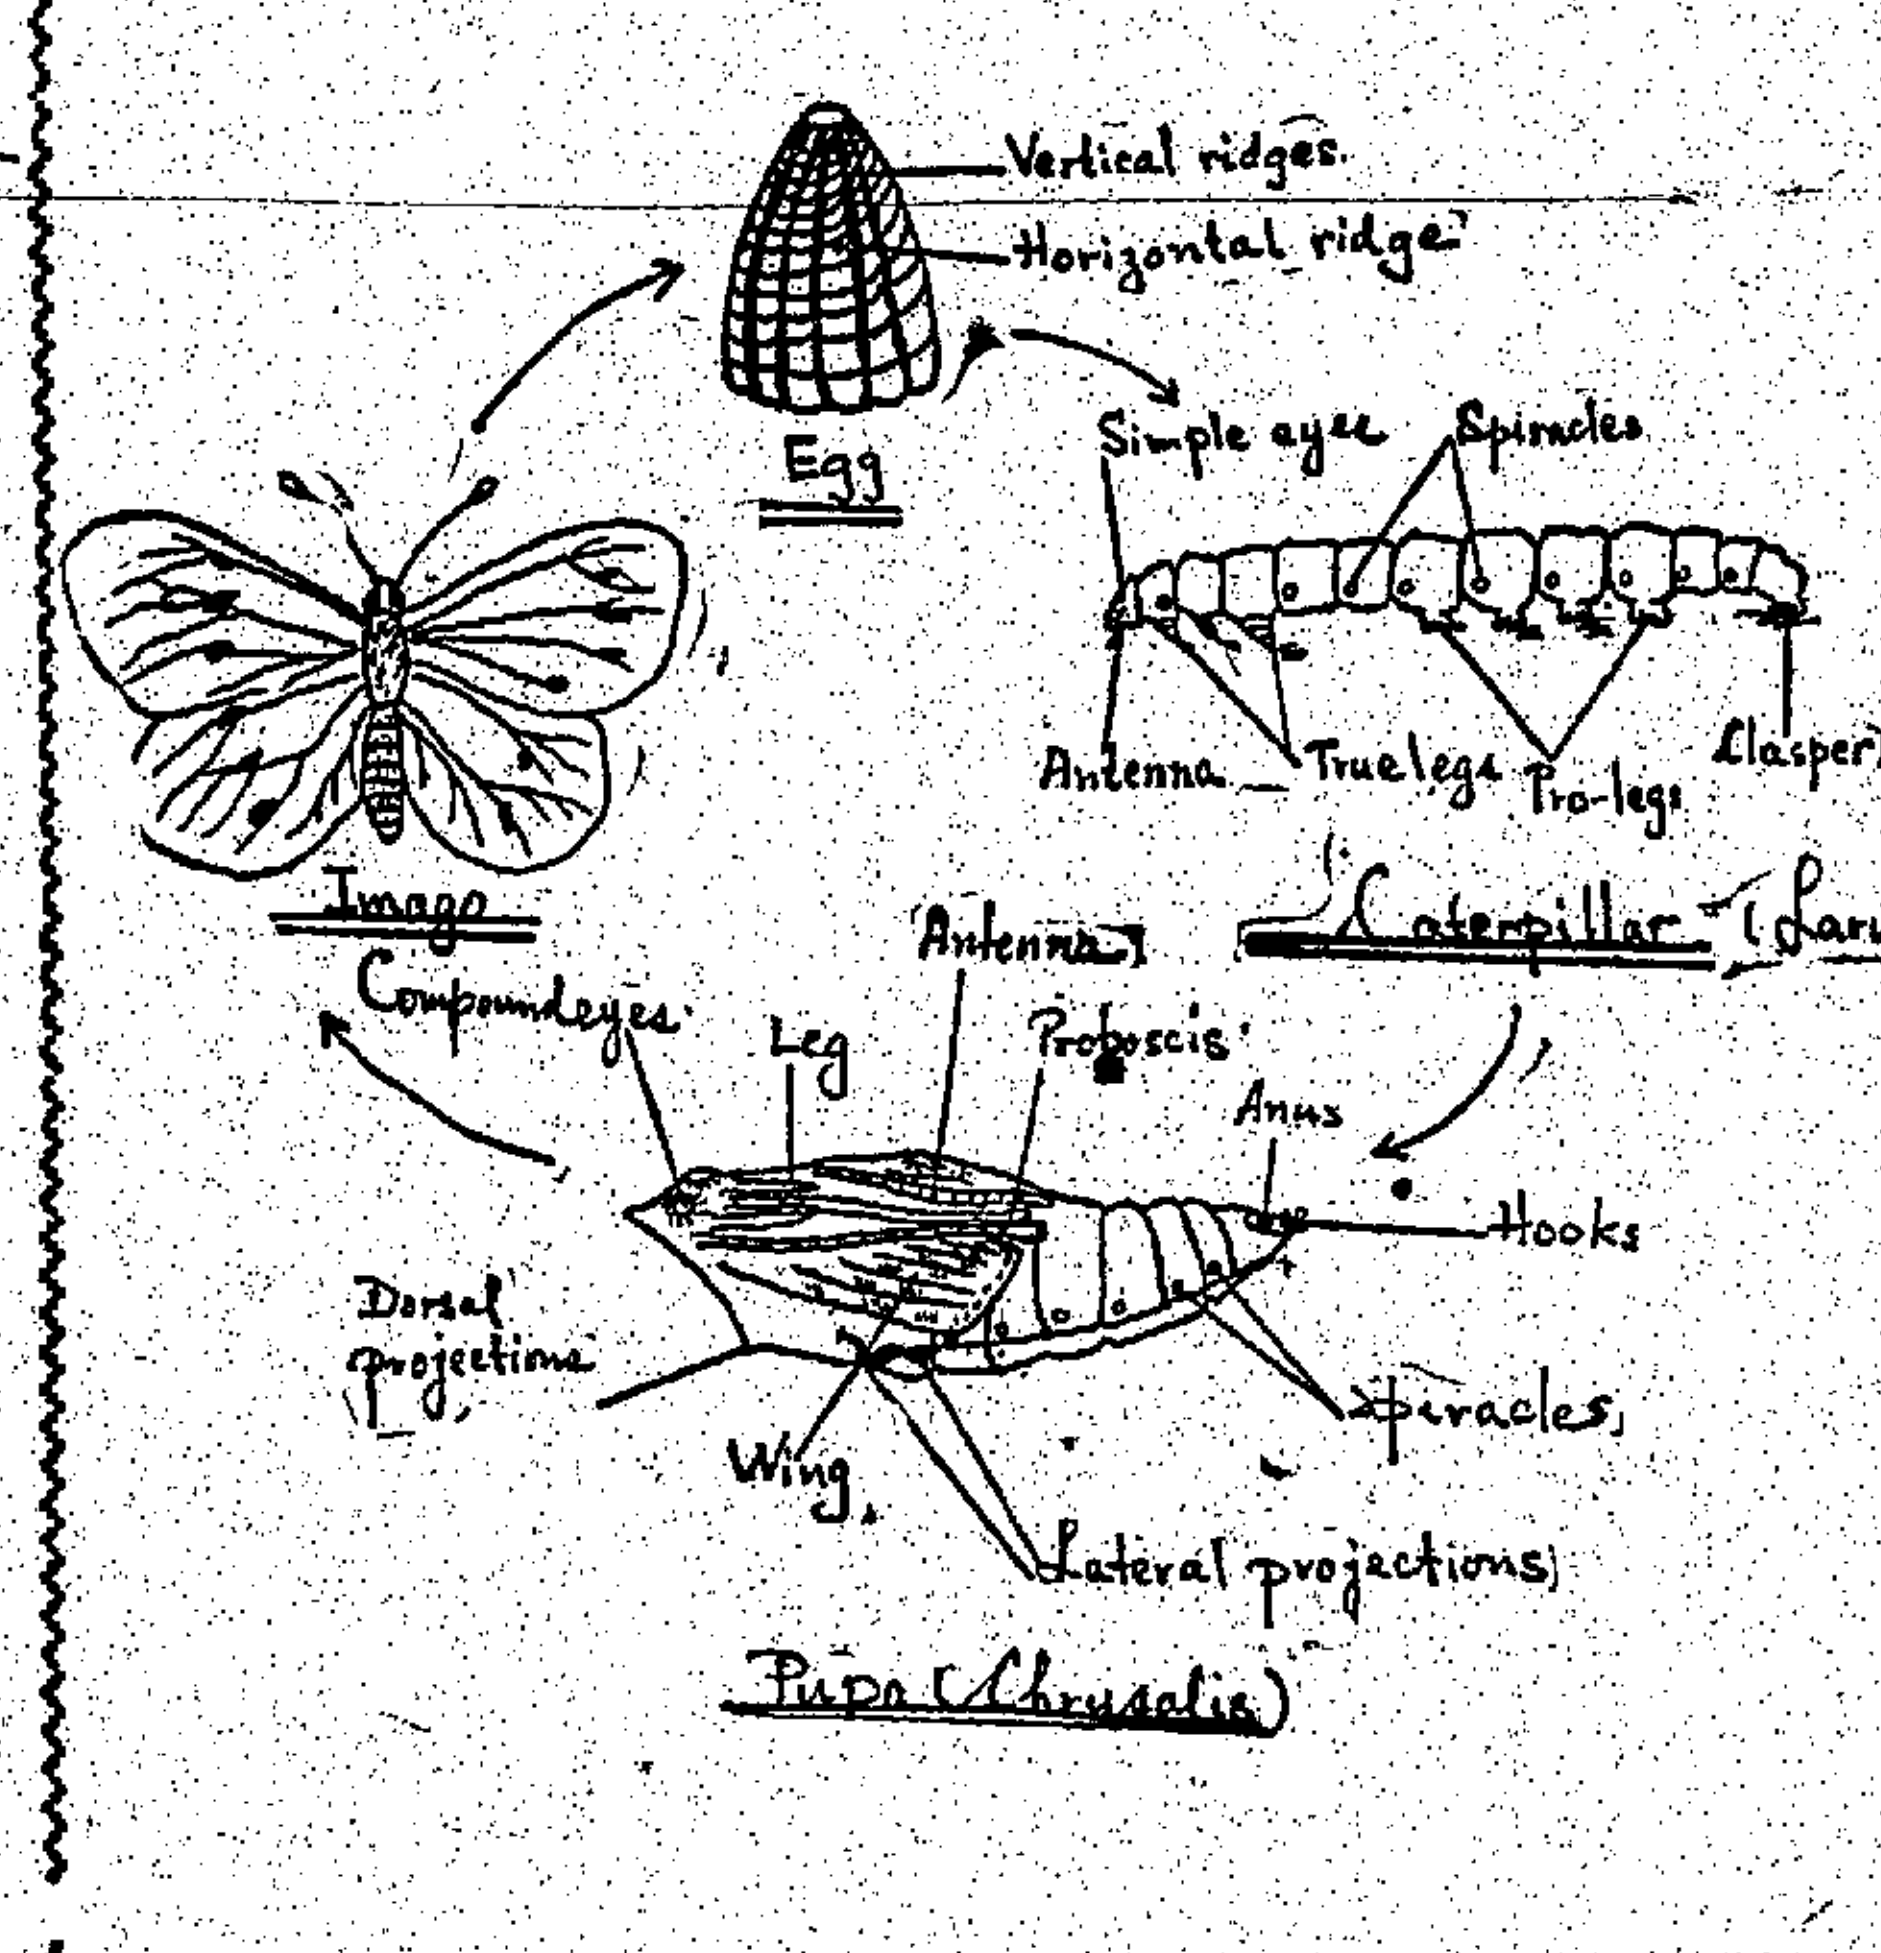 Vertical ridges.
Horizontal ridge
Egg
Simple eyes
Spiracles
Antenna
True legs
Pro-legs
Clasper
Imago
Caterpillar (Larv
Antenna
Compound eyes
Leg
Proboscis
Anus
Hooks
Dorsal
projections
Spiracles
Wing
Lateral projections
Pupa (Chrysalis)